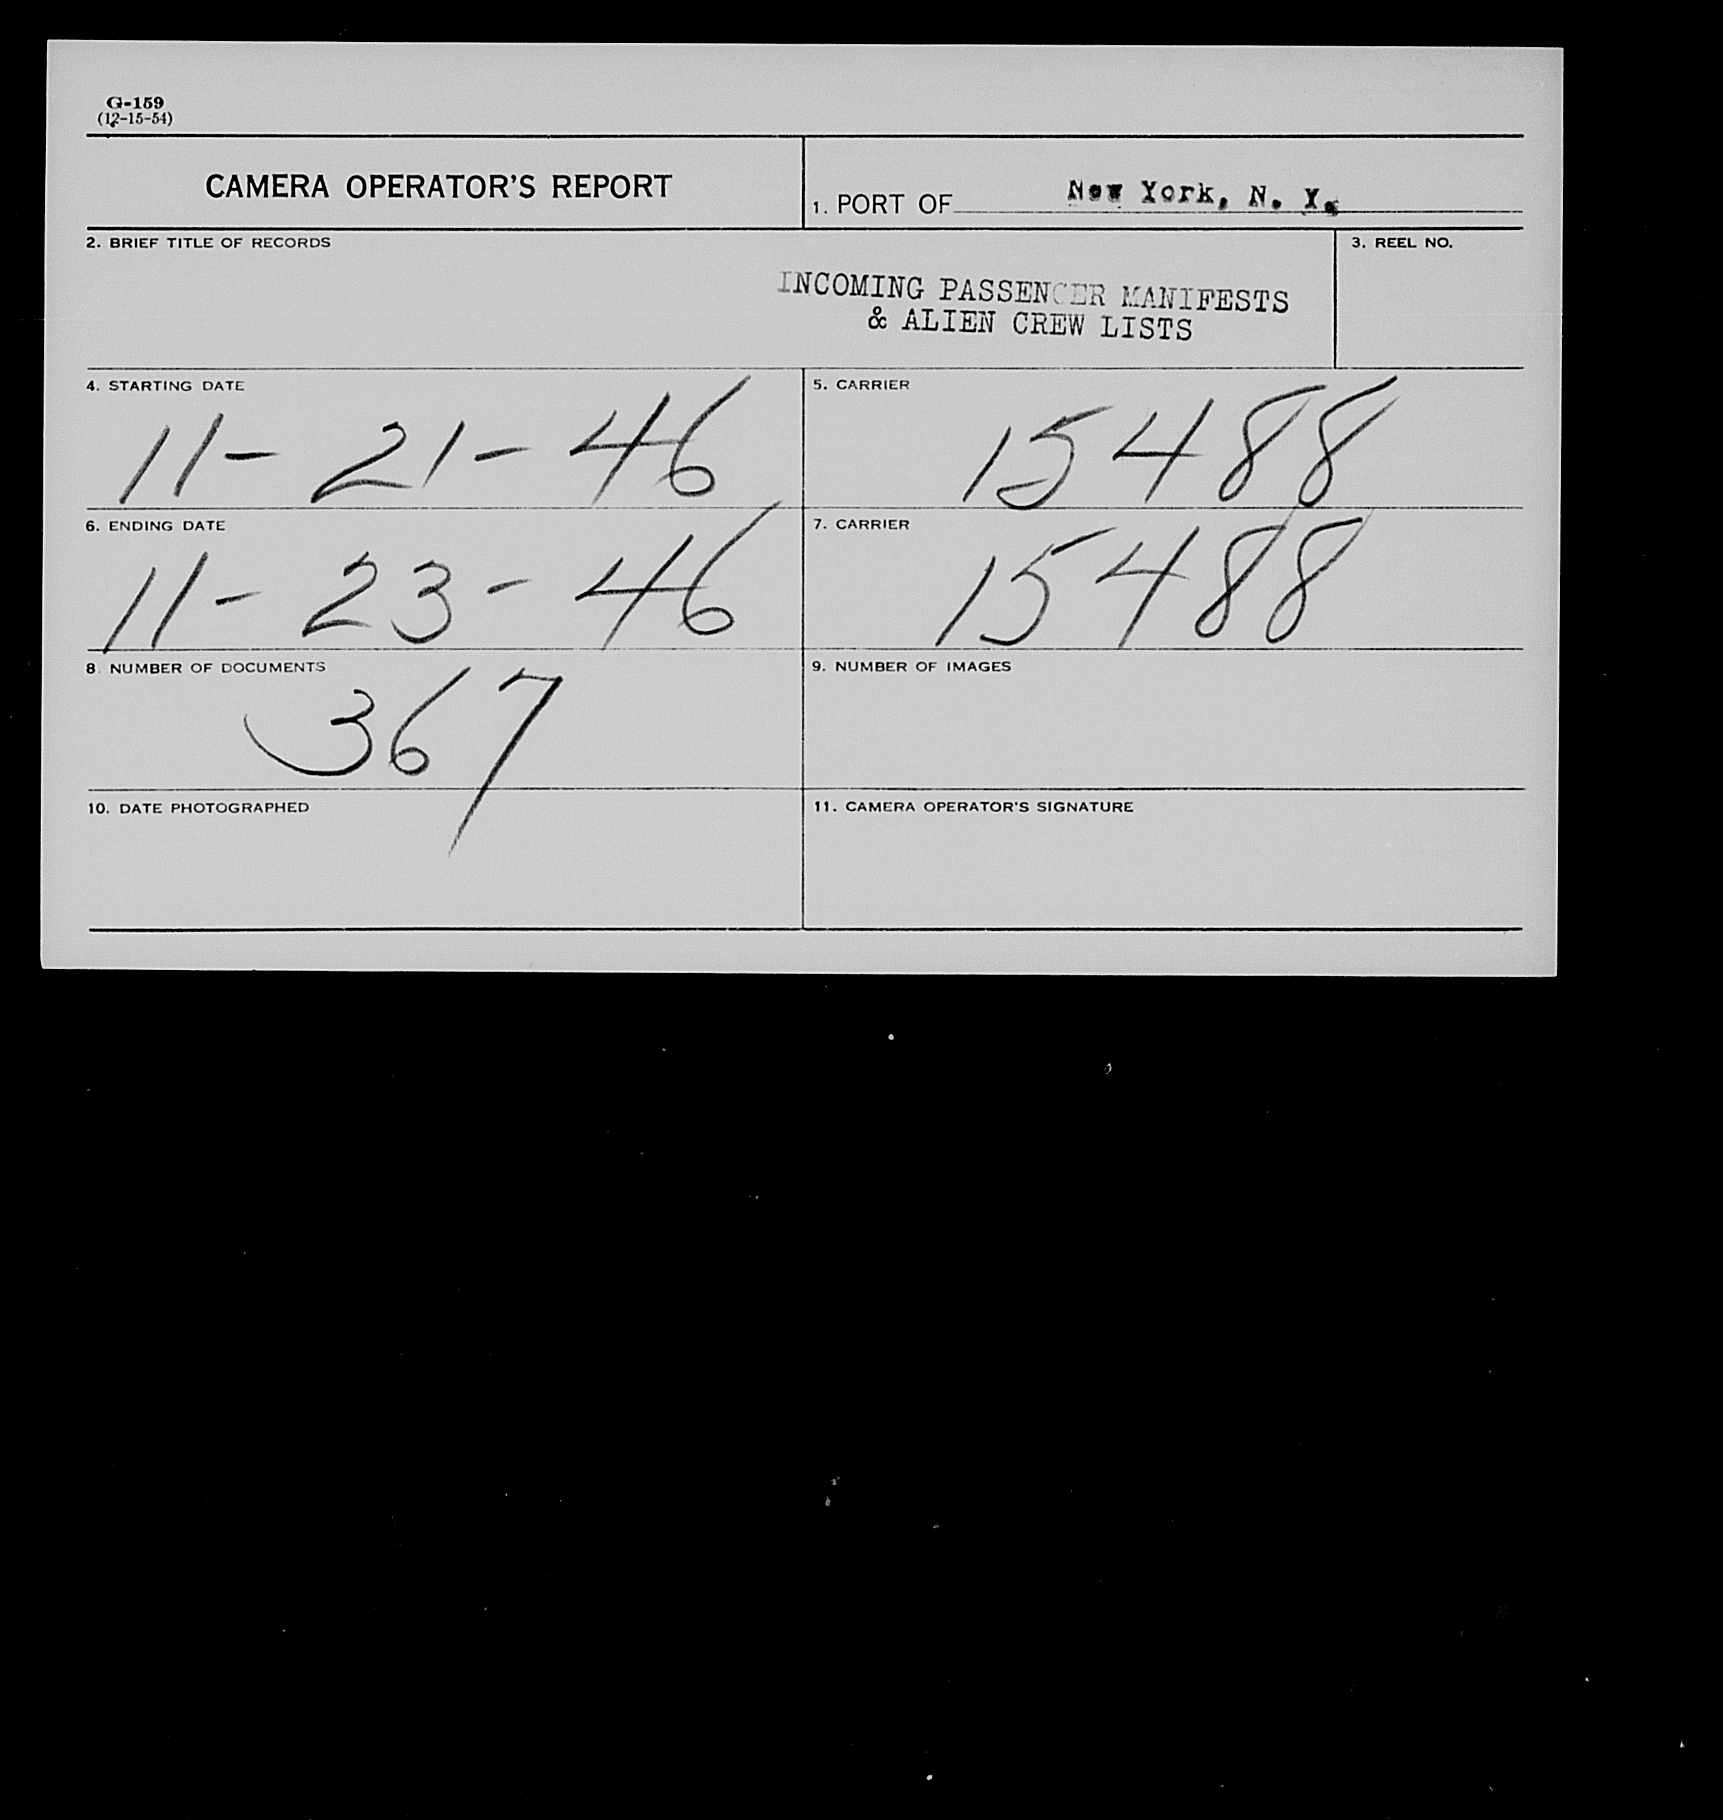 G-159
(12-15-54)
CAMERA OPERATOR'S REPORT
1. PORT OF New York, N. Y.
2. BRIEF TITLE OF RECORDS
INCOMING PASSENGER MANIFESTS
& ALIEN CREW LISTS
3. REEL NO.
4. STARTING DATE
11-21-46
5. CARRIER
15488
6. ENDING DATE
11-23-46
7. CARRIER
15488
8. NUMBER OF DOCUMENTS
367
9. NUMBER OF IMAGES
10. DATE PHOTOGRAPHED
11. CAMERA OPERATOR'S SIGNATURE